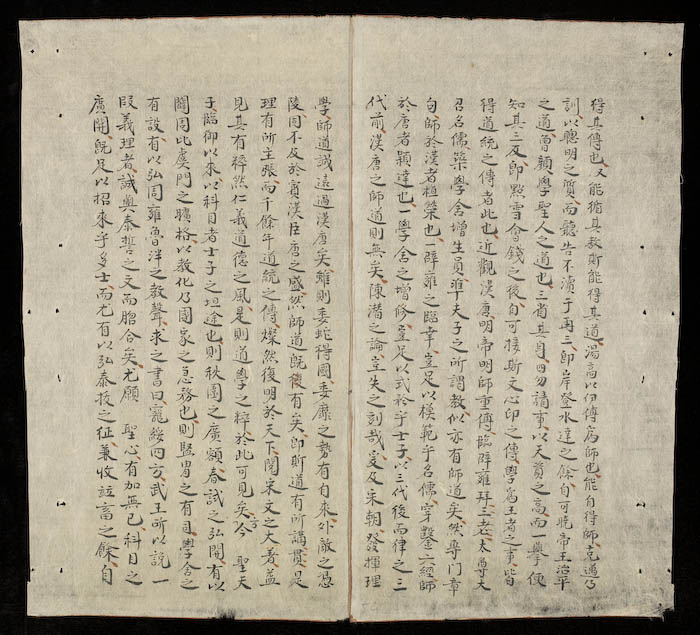 得其傳也又能循其教斯能得其道湯高以伊傅爲師也能自得師克遵乃
訓以聰明之質而聽告不瀆于再三即岸登水達之餘自可晩帝王治平
之道曾顔學聖人之道也三省其身四勿請事以天質之高而一學便
知其三反即點雪會錢之後自可接斯文心印之傳學爲王者之事皆
得道統之傳者此也近觀漢唐明帝明師重傅臨辟雍拜三老太尊大
召名儒藥學舍增生員準夫子之所謂教似亦有師道矣然專門章
句師於漢者桓榮也一辟雍之臨幸豈足以模範乎名儒穿鑿一經師
於唐者穎達也一學舍之增修豈足以式袗乎士子以三代後而律之三
代前漢唐之師道則無矣陳潛之論豈失之刻哉爰及宋朝發揮理
學師道誠遠過漢唐矣雖則委蛇得國委靡之勢有自來外敵之憑
陵固不及於賓漢臣唐之盛然師道既復有矣即斯道有所講貫是
理有所主張而千餘年道統之傳燦然復明於天下閱宋文之大著益
見其有粹然仁義道德之風是則道學之粹於此可見矣今聖天
子臨御以來以科目者士子之坦途也則秋圍之廣額春試之弘開有以
闢周比虞門之曠格以教化乃國家之急務也則豎胄之有司學舍之
有設有以弘周雍魯泮之教聲求之書曰寵綏四方武王所以說一
段義理者誠與泰誓之文而脗合矣尤願聖心有加無已科目之
廣開既足以招來乎多士而尤有以弘泰拔之征兼收並畜之餘自